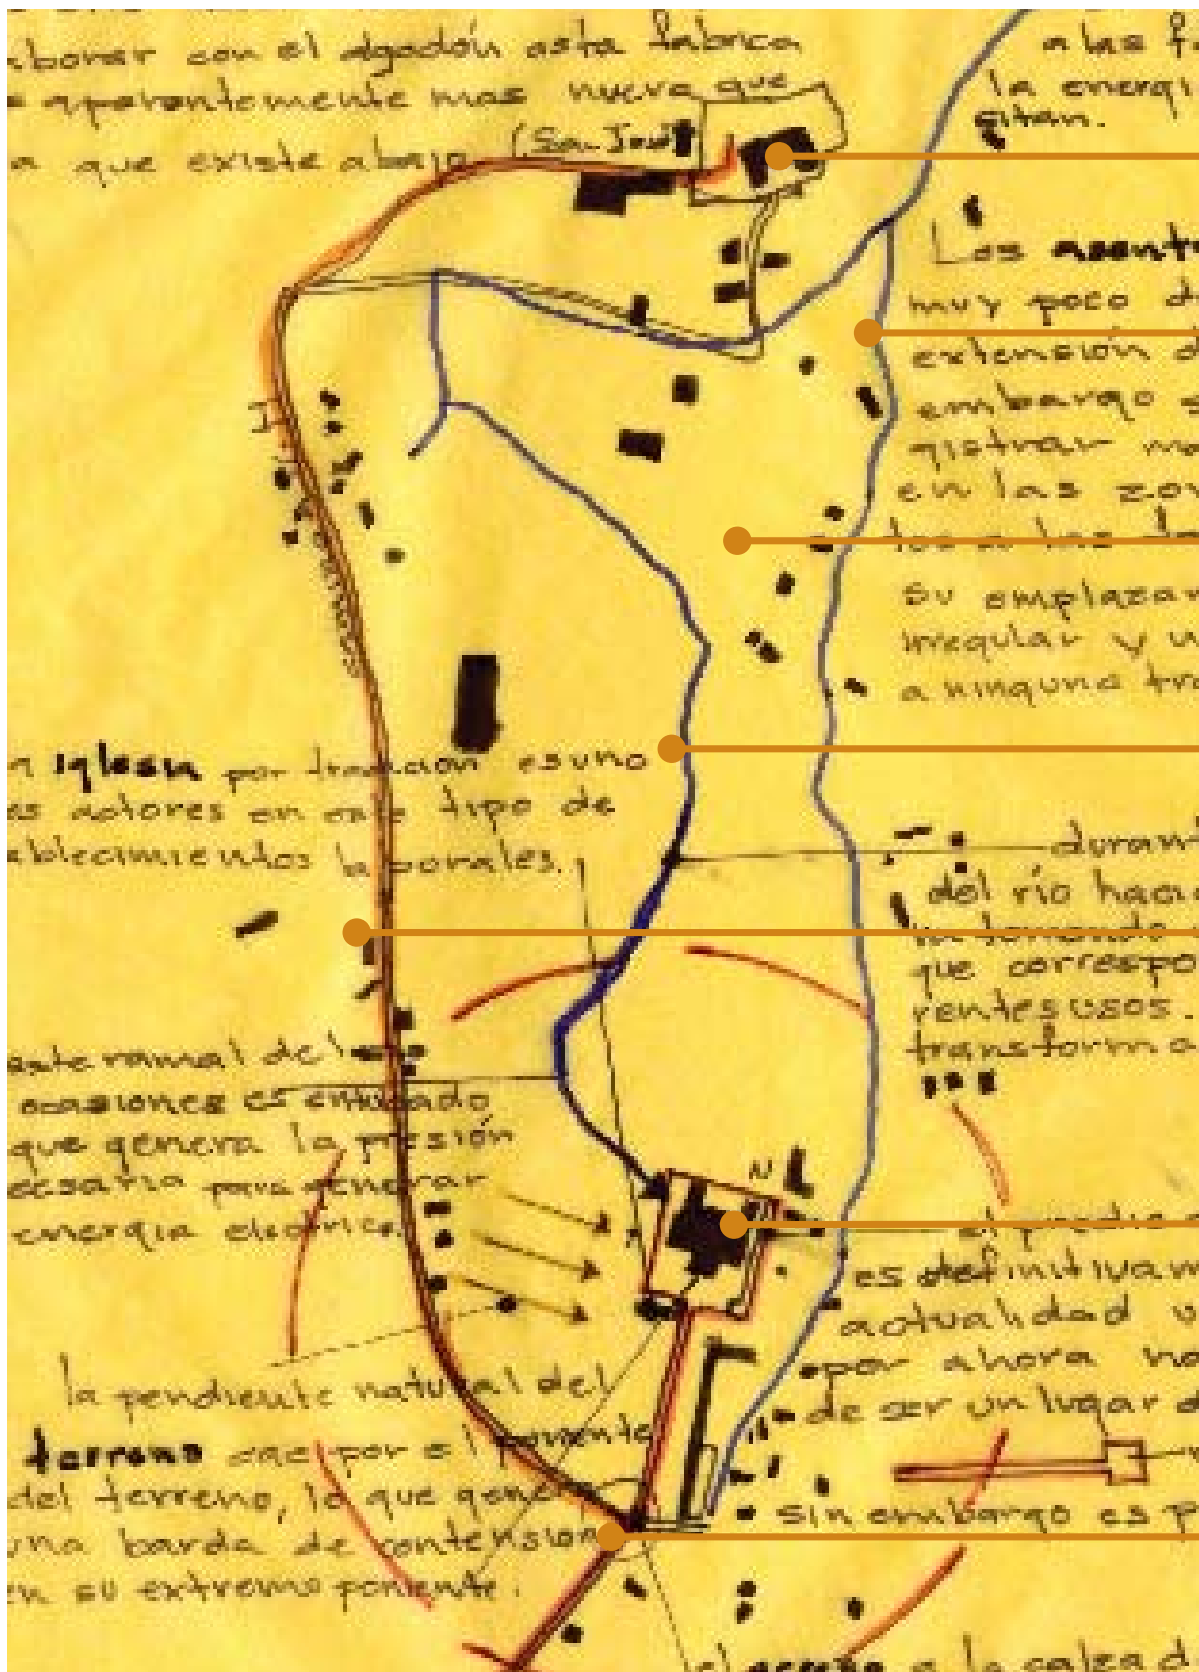 aborar con el algodón esta fabrica
aparentemente mas nueva que
a que existe abajo. (San José)
a las f
la energi
sitan.
Los asent
muy poco d
extensión d
embargo
gistrar
en las zo
los a las
su emplaza
irregular y u
a ninguna tra
camino
a iglesia por tradición es uno
as actores en este tipo de
ablecimientos laborales.
durant
del río haci
tomando
que correspo
rentes usos.
transforma
este ramal del
ocasiones es entubado
que genera la presión
ecsaria para generar
energia electrica.
N
el predio
es definitivam
actualidad u
por ahora no
de ser un lugar d
la pendiente natural del
terreno cae por el poniente
del terreno, lo que genera
una barda de contension
en su extremo poniente.
sin embargo es p
el acceso a la calzad